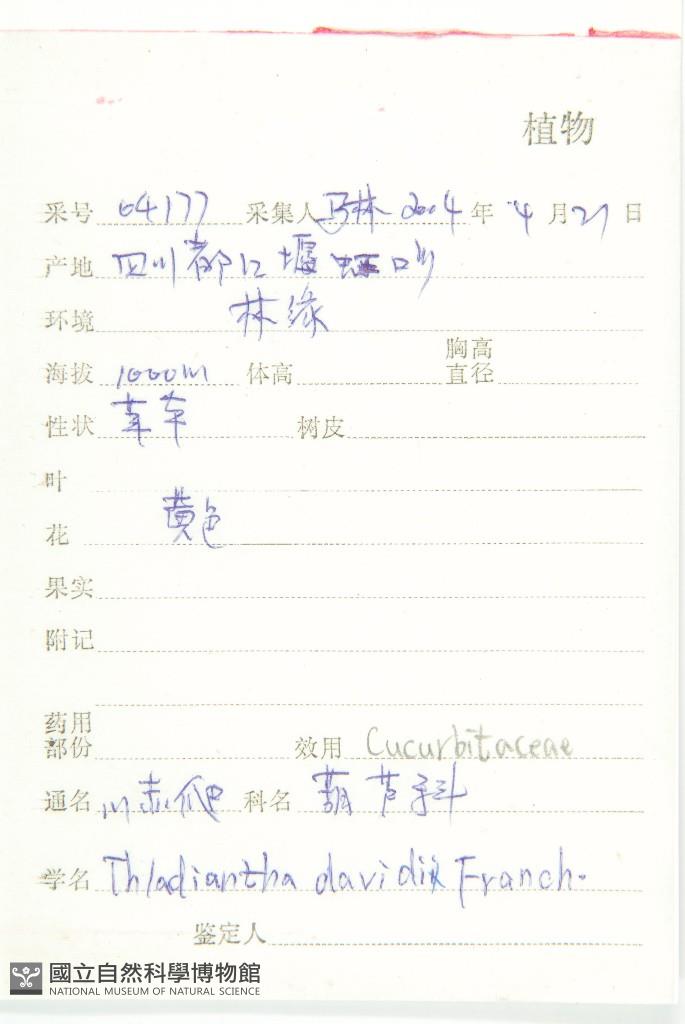 植物
采号 04177 采集人 马林 2004 年 4 月 27 日
产地 四川都江堰
环境 林缘
胸高
海拔 1000m 体高 直径
性状 草本 树皮
叶
花 黄色
果实
附记
药用
部份 效用 Cucurbitaceae
通名 川赤瓟 科名 葫芦科
学名 Thladiantha davidii Franch.
鉴定人
國立自然科學博物館
NATIONAL MUSEUM OF NATURAL SCIENCE